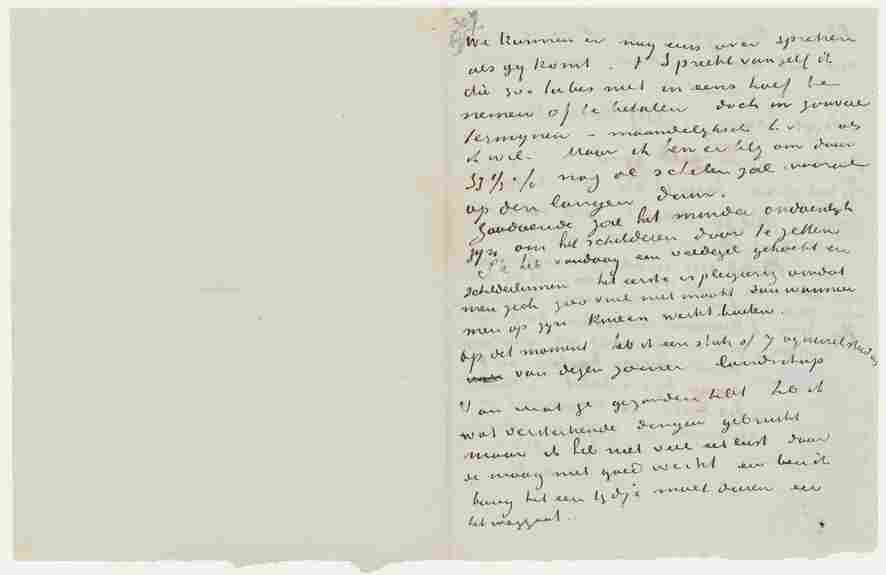 we kunnen er nog eens over spreken
als gy komt. Spreekt vanzelf ik
die 300 tubes niet in eens hoef te
nemen of te betalen doch in zooveel
termynen – maandelyksch b.v. als
ik wil. Maar ik ben er bly om daar
33 1/3 % nog al schelen zal vooral
op den langen duur.
Zoodoende zal het minder ondoenlyk
zyn om het schilderen door te zetten
Ik heb vandaag een veldezel gekocht en
schilderlinnen het eerste is plezierig omdat
men zich zoo vuil niet maakt dan wanneer
men op zyn knieen werkt buiten.
op dit moment heb ik een stuk of 7 aquarelstudies
van dezen zomer landschap
Van wat ge gezonden hebt heb ik
wat versterkende dingen gebruikt
maar ik heb niet veel eetlust daar
de maag niet goed werkt en ben ik
bang het een tydje moet duren eer
het weggaat.